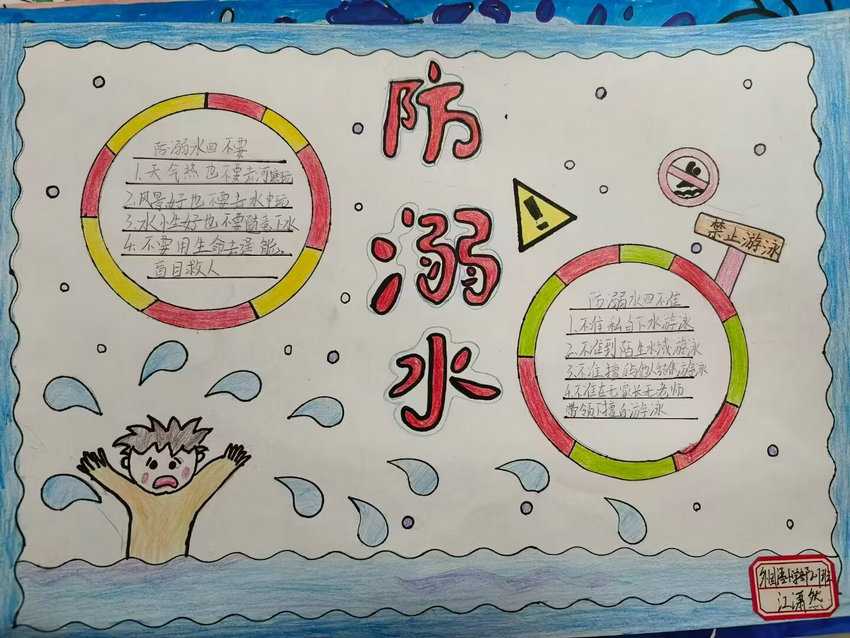 防
溺
水
防溺水四不要
1.天气热也不要去河塘玩
2.风景好也不要去水中玩
3.水小生好也不要随意下水
4.不要用生命去逞能、
盲目救人
禁止游泳
防溺水四不准
1.不准私自下水游泳
2.不准到陌生水域游泳
3.不准擅自与他人结伴游泳
4.不准在无家长无老师
带领下擅自游泳
江潇然